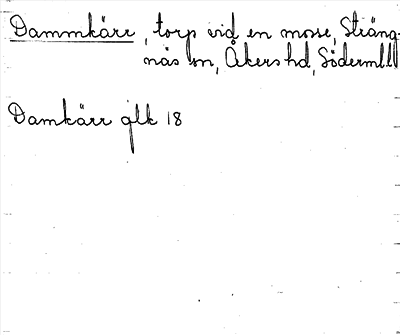 Dammkärr, torp vid en mosse, Sträng-
näs sn, Åkers hd, Söderml.
Damkärr glk 18